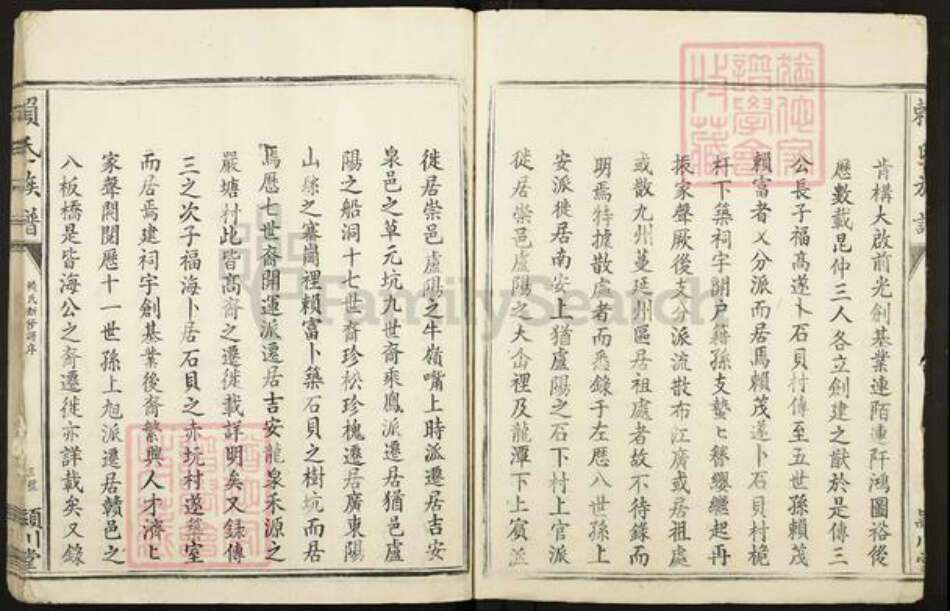 肯構大啟前光創基業連陌連阡鴻圖裕後
歷數載昆仲三人各立創建之猷於是傳三
公長子福高遂卜石貝村傳至五世孫賴茂
賴富者又分派而居焉賴茂遂卜石貝村桅
杆下築祠宇開戶籍孫支蟄ヒ簪纓繼起再
振家聲厥後支分派流散布江廣或居祖處
或散九州蔓延州區居祖處者故不待錄而
明焉特據散處者而悉錄于左歷八世孫上
安派徙居南安上猶盧陽之石下村上官派
徙居崇邑盧陽之大㟁裡及龍潭下上賓派
徙居崇邑盧陽之牛嶺嘴上時派遷居吉安
泉邑之草元坑九世裔乘鳳派遷居猶邑盧
陽之船洞十七世裔珍松珍槐遷居廣東陽
山縣之寨崗裡賴富卜築石貝之樹坑而居
焉歷七世裔開運派遷居吉安龍泉禾源之
嚴塘村此皆高裔之遷徙載詳明矣又錄傳
三之次子福海卜居石貝之赤坑村遂築室
而居焉建祠宇創基業後裔繁興人才濟ヒ
家聲閎閱歷十一世孫上旭派遷居贛邑之
八板橋是皆海公之裔遷徙亦詳載矣又錄
賴氏族譜
賴氏新修譜序
三號
潁川堂
FamilySearch